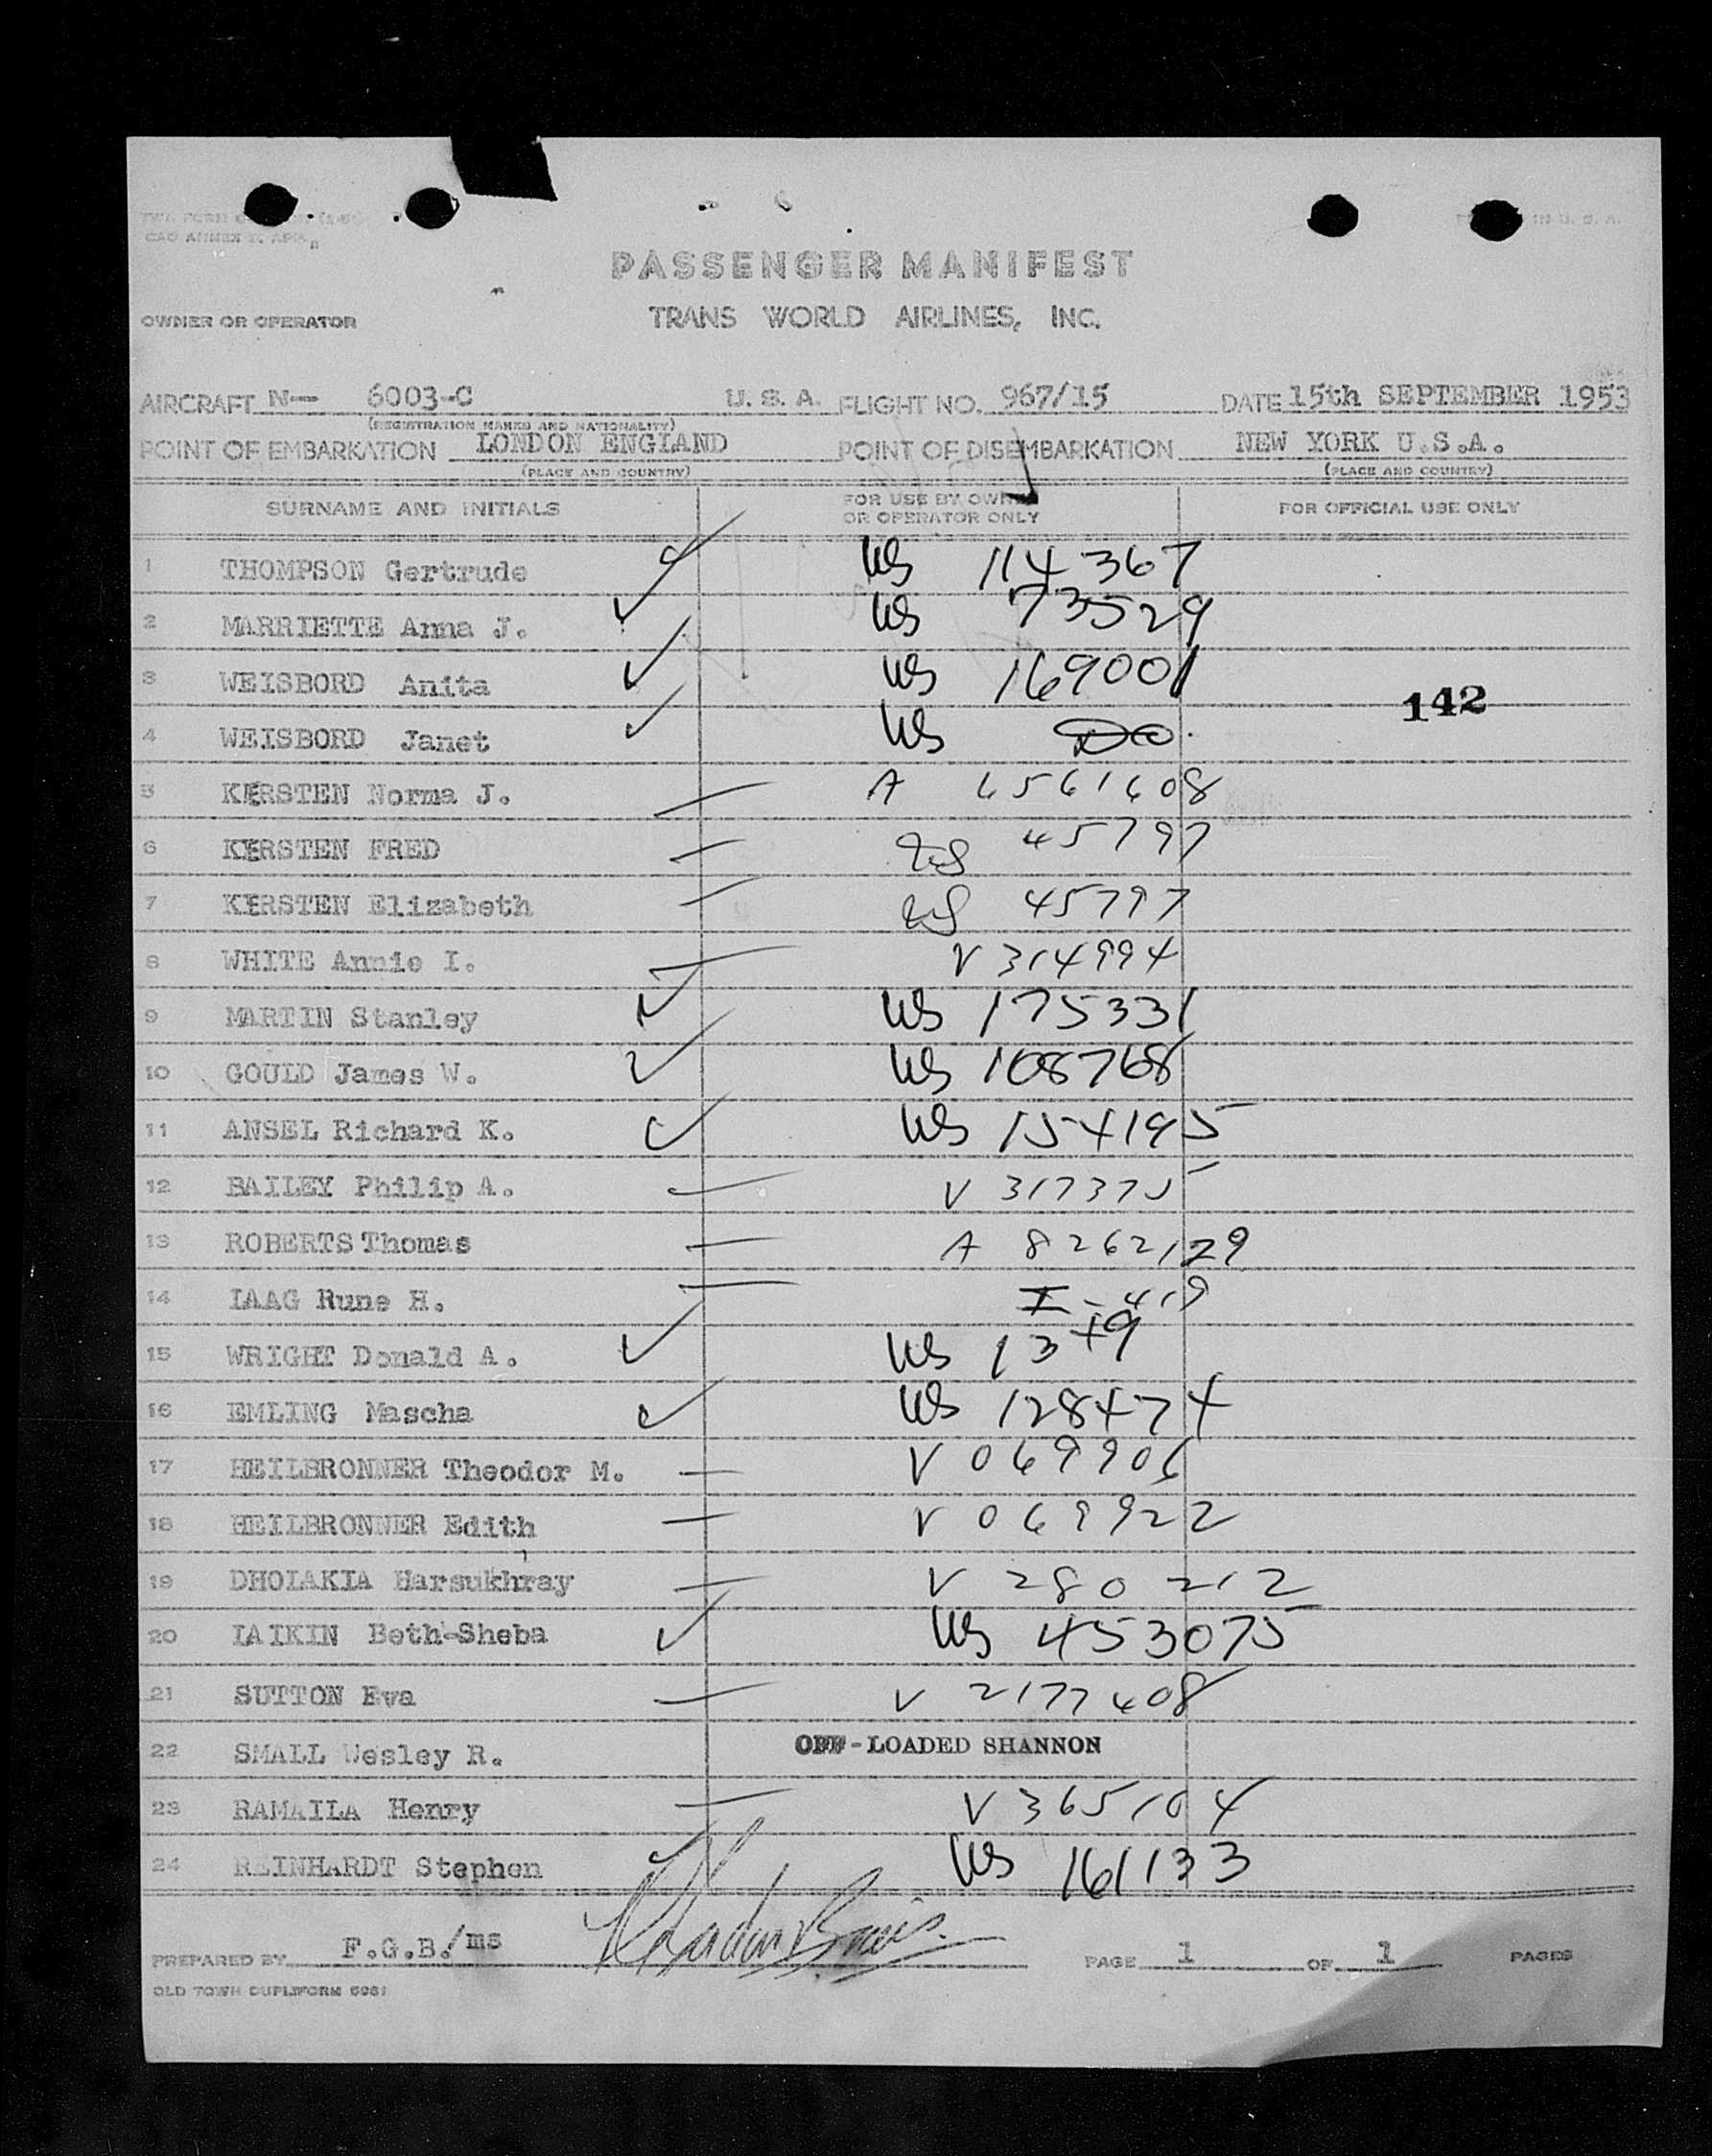 CAO ANNEX
PASSENGER MANIFEST
OWNER OR OPERATOR TRANS WORLD AIRLINES, INC.
AIRCRAFT N— 6003-C U.S.A. FLIGHT NO. 967/15 DATE 15th SEPTEMBER 1953
(REGISTRATION MARKS AND NATIONALITY)
POINT OF EMBARKATION LONDON ENGLAND POINT OF DISEMBARKATION NEW YORK U.S.A.
(PLACE AND COUNTRY) (PLACE AND COUNTRY)
SURNAME AND INITIALS FOR USE BY OWNER OR OPERATOR ONLY FOR OFFICIAL USE ONLY
1 THOMPSON Gertrude US 114367
2 MARRIETTE Anna J. US 73529
3 WEISBORD Anita US 169001
142
4 WEISBORD Janet US Do.
5 KERSTEN Norma J. A 6561608
6 KERSTEN FRED 45797
7 KERSTEN Elizabeth 45797
8 WHITE Annie I. V 314994
9 MARTIN Stanley US 175331
10 GOULD James W. US 108768
11 ANSEL Richard K. US 154195
12 BAILEY Philip A. V 317375
13 ROBERTS Thomas A 8262129
14 IAAG Rune H. I-419
15 WRIGHT Donald A. US 1349
16 EMLING Mascha US 128474
17 HEILBRONNER Theodor M. V 069906
18 HEILBRONNER Edith V 069922
19 DHOIAKIA Harsukhray V 280212
20 IAIKIN Beth-Sheba US 453075
21 SUTTON Eva V 2177408
22 SMALL Wesley R. OFF-LOADED SHANNON
23 RAMAILA Henry V 365104
24 REINHARDT Stephen US 161133
PREPARED BY F.G.B./ms PAGE 1 OF 1 PAGES
OLD TOWN DUPLIFORM